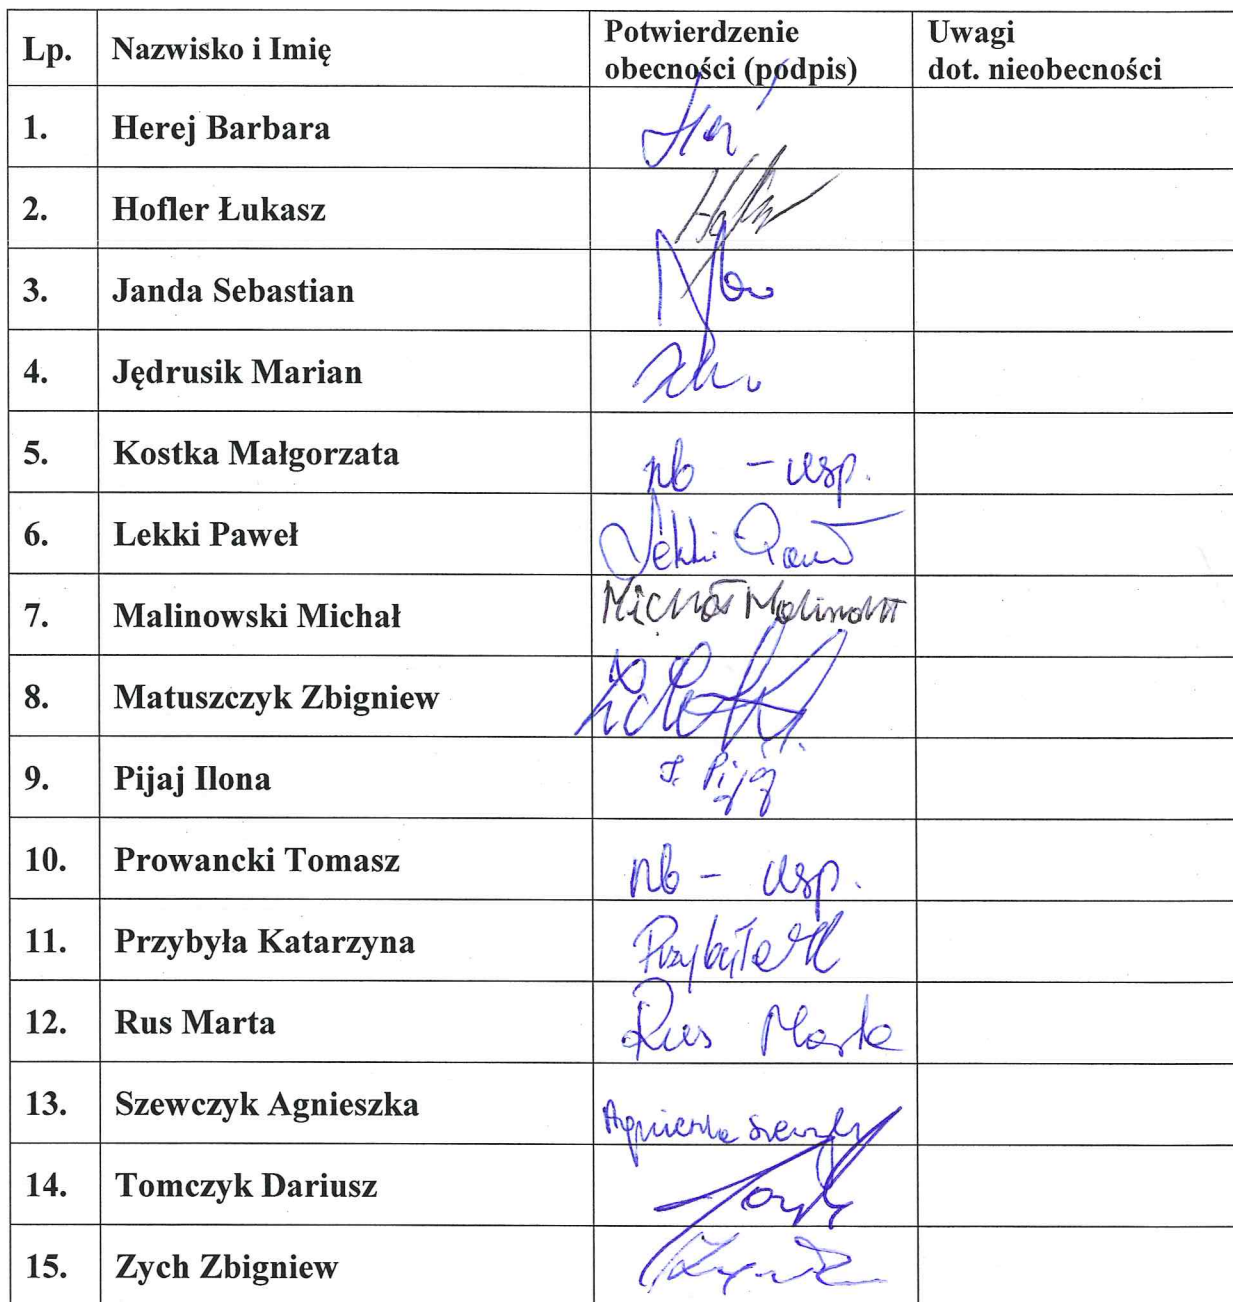 Lp. Nazwisko i Imię Potwierdzenie obecności (podpis) Uwagi dot. nieobecności
1. Herej Barbara
2. Hofler Łukasz
3. Janda Sebastian
4. Jędrusik Marian
5. Kostka Małgorzata nb - usp.
6. Lekki Paweł Lekki Paweł
7. Malinowski Michał Michał Malinowski
8. Matuszczyk Zbigniew
9. Pijaj Ilona I. Pijaj
10. Prowancki Tomasz nb - usp.
11. Przybyła Katarzyna Przybyła K
12. Rus Marta Rus Marta
13. Szewczyk Agnieszka Agnieszka Szewczyk
14. Tomczyk Dariusz
15. Zych Zbigniew